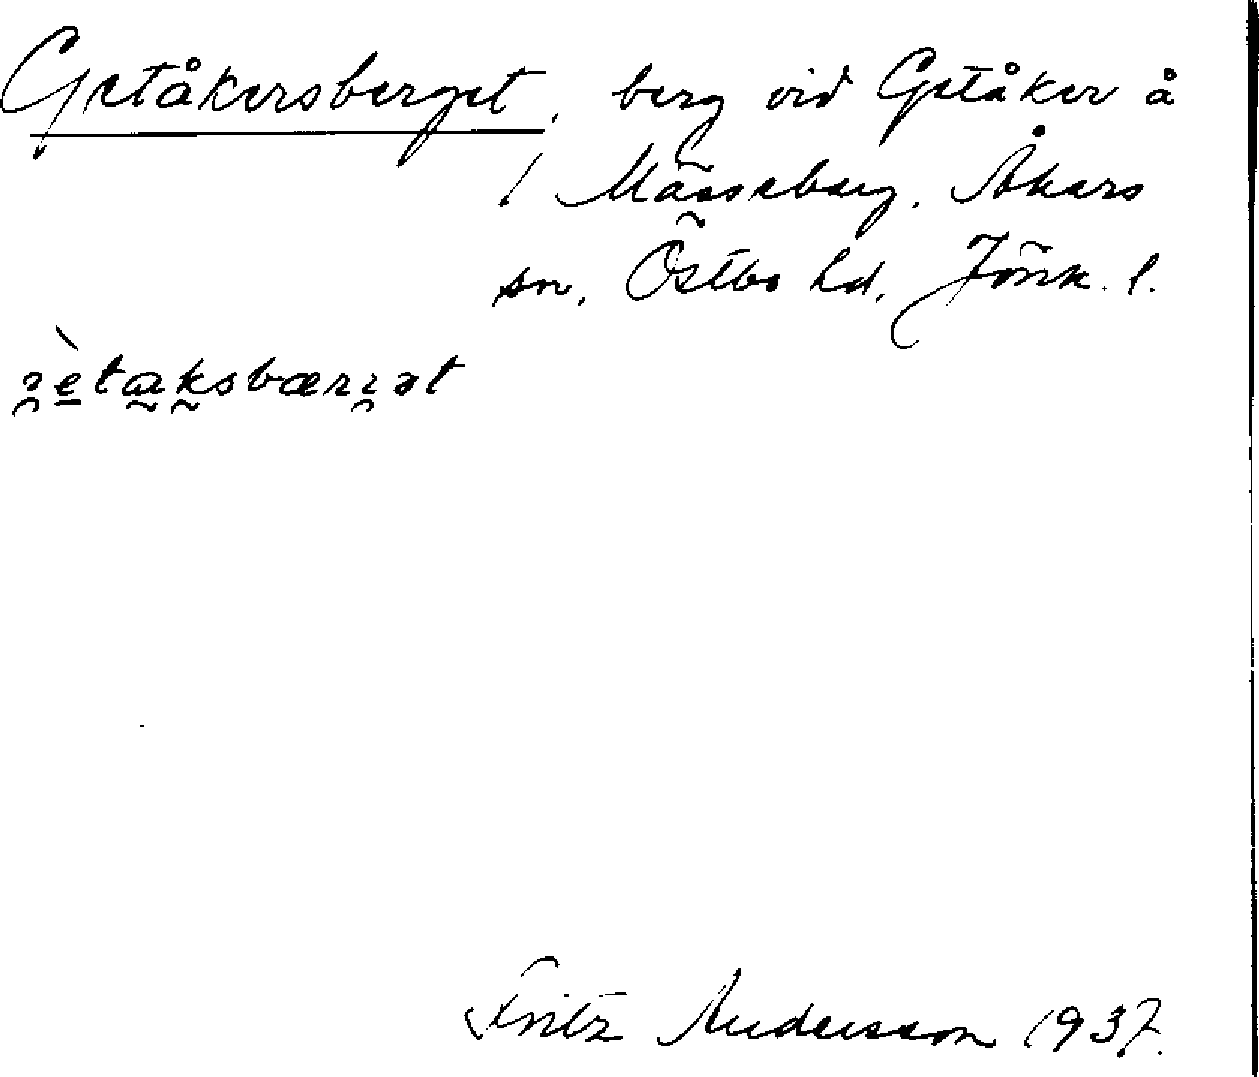 Getåkersberget, berg vid Getåker å
1 Mässeberg. Åkers
sn, Östbo hd, Jönk. l.
Fritz Andersson 1937.